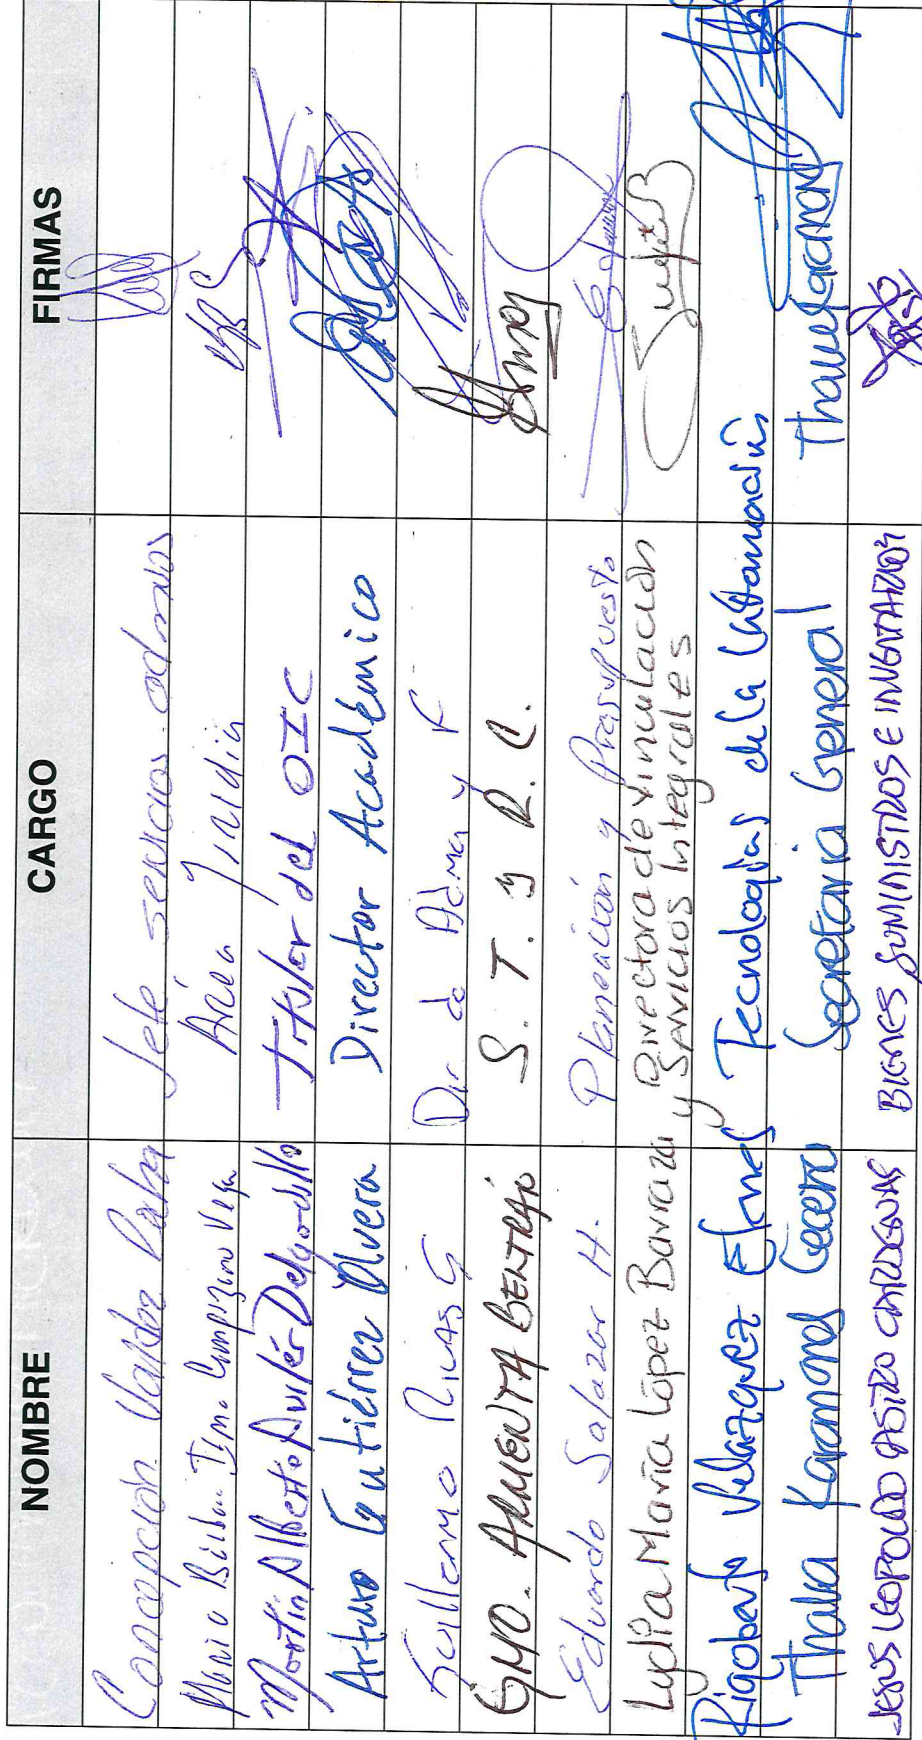 NOMBRE CARGO FIRMAS
Concepción Valdez Jefe servicios admvos
María Área Jurídica
Martín Alberto Avilés Delgadillo Titular del OIC
Arturo Gutiérrez Olvera Director Académico
Guillermo Rivas G Dir de Adm y F
GMO. ARMENTA BELTRÁN S. T. y R. C.
Eduardo Salazar H. Planeación y Presupuesto
Lydia María López Barraza Directora de Vinculación
y Servicios Integrales
Rigoberto Velazquez Tecnologías de la Información
Thania Karamans Cecena Secretaria General
JESUS LEOPOLDO CASTRO BIENES SUMINISTROS E INVENTARIOS